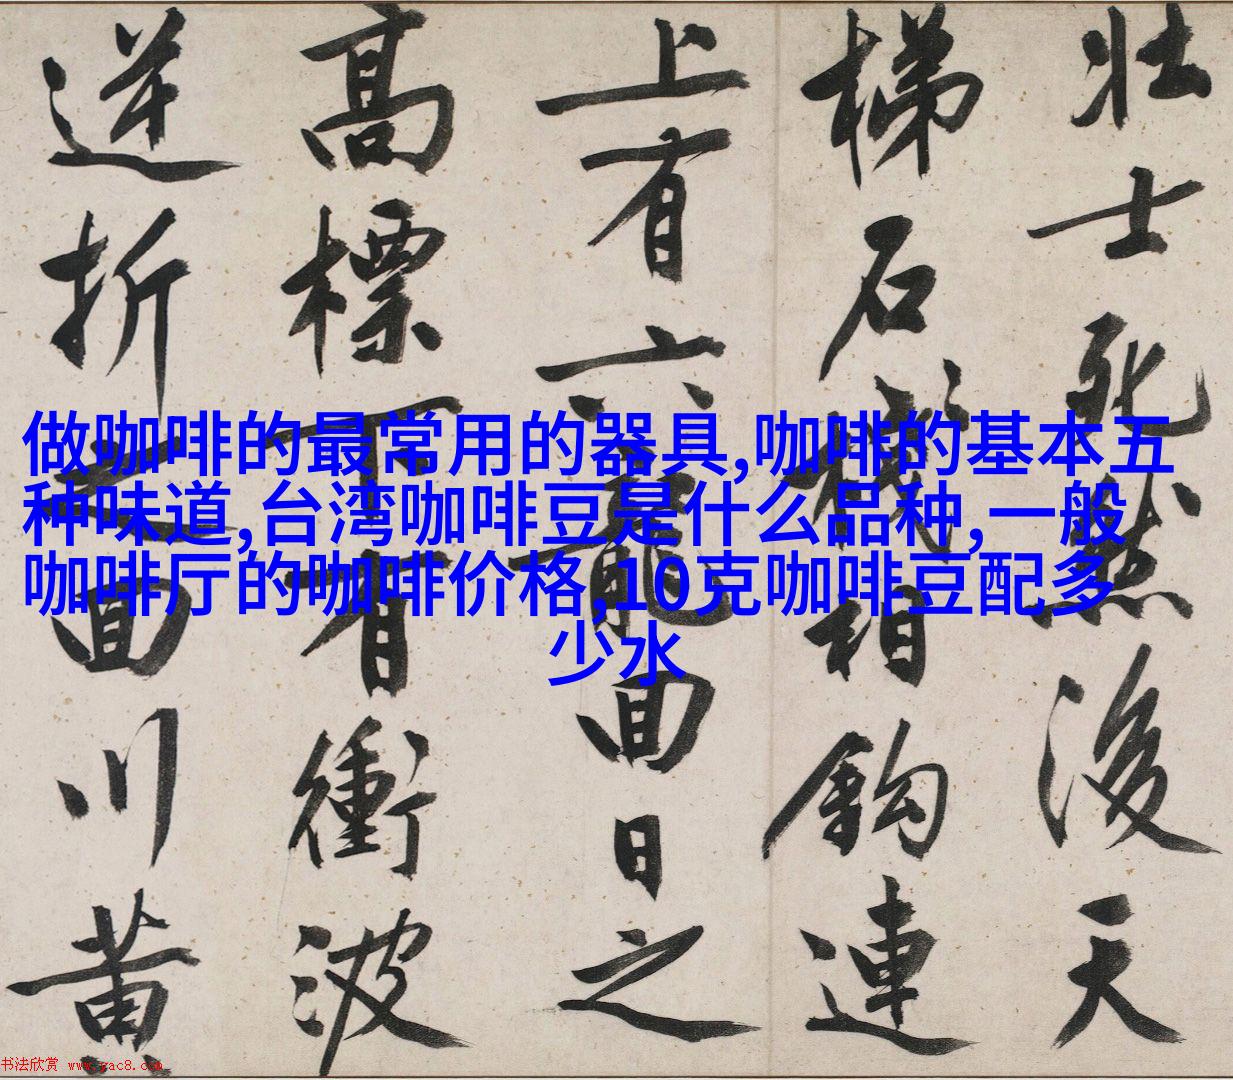 壯士死然後天
梯石棧相鈎連
上有六龍回日之
高標下有衝波
逆折之回川黃
做咖啡的最常用的器具,咖啡的基本五
种味道,台湾咖啡豆是什么品种,一般
咖啡厅的咖啡价格,10克咖啡豆配多
少水
书法欣赏 www.yac8.com